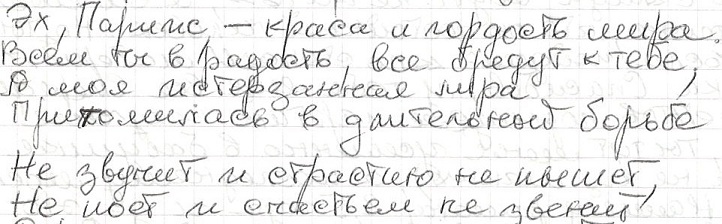 Эх, Париис – краса и гордость мира.
Всем ты в радость все бредут к тебе,
А моя истерзанная лира
Притомилась в длительной борьбе
Не звучит и страстию не пышет,
Не поёт и счастьем не звенит